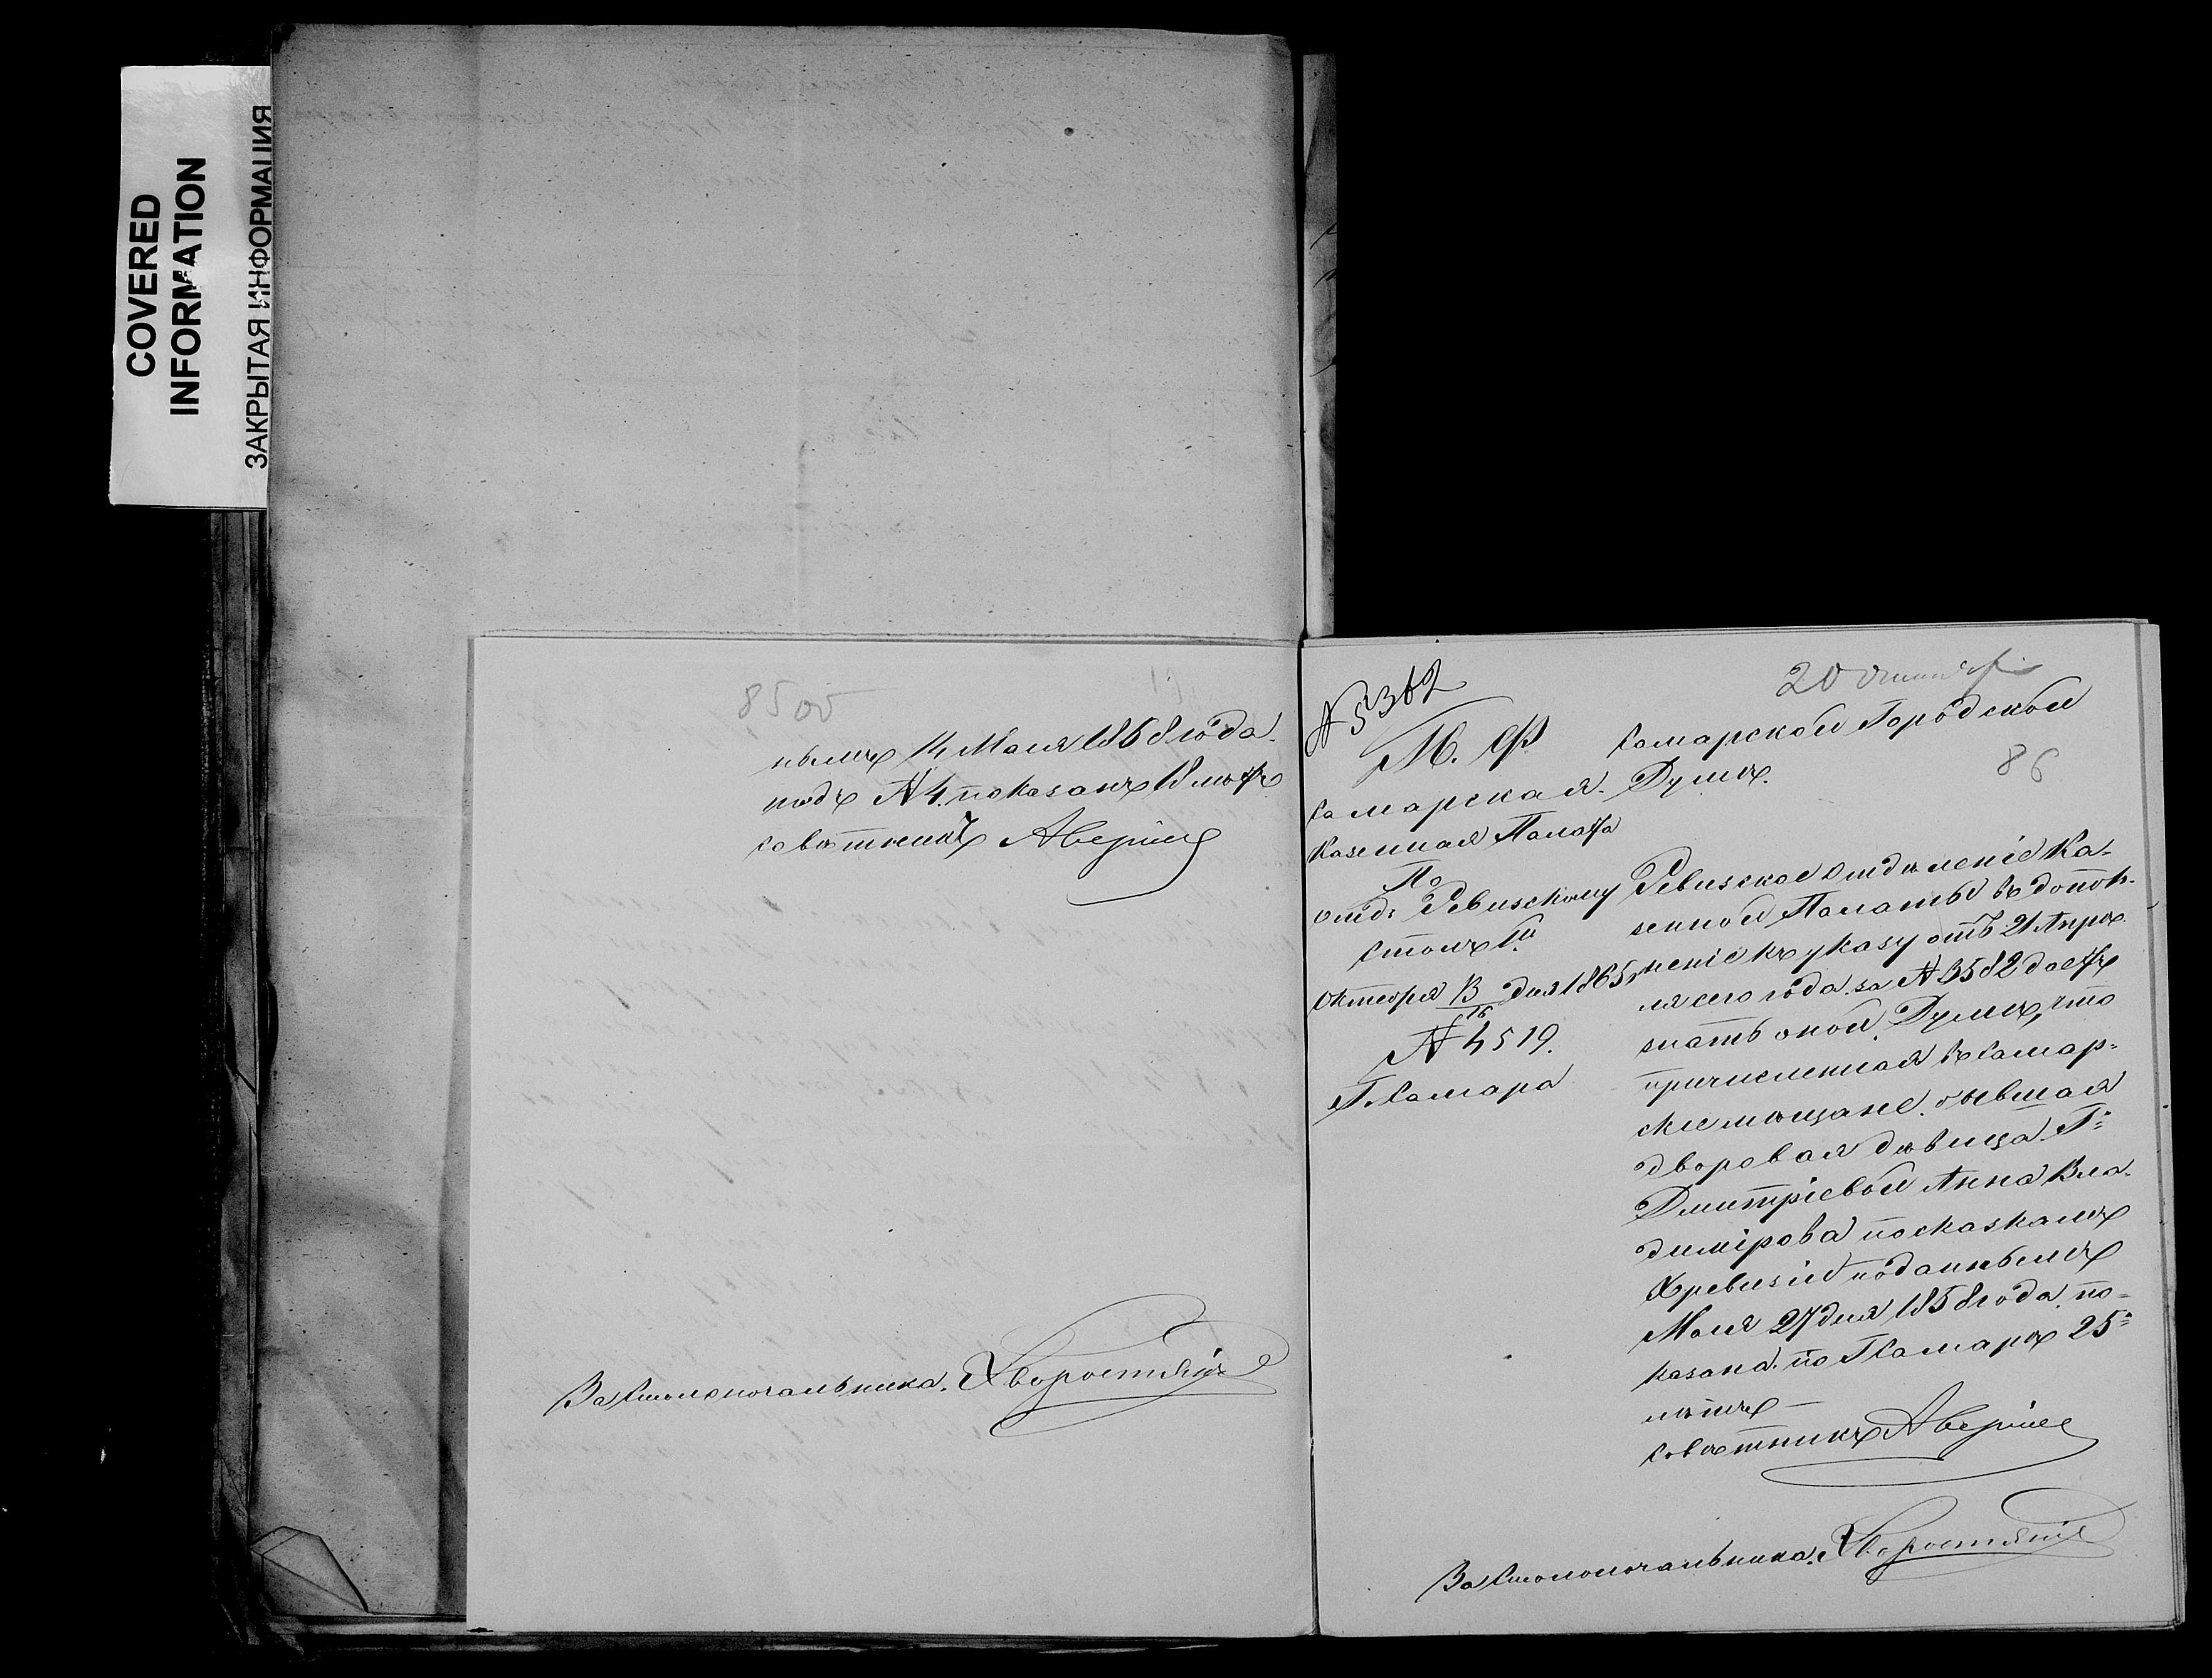 COVERED
INFORMATION
ЗАКРЫТАЯ ИНФОРМАЦИЯ
85 об
нымъ 14 Маiя 1858 года.
подъ № 4. показанъ 18 лѣтъ
Совѣтникъ Аверинъ
За Столоначальника.
№ 5362
М. Ф.
Самарская.
Казенная Палата
По
отд: Ревизскому
Столъ 1й
Октября 13/16 дня 1865 г
№ 4519.
Г. Самара
20 Октября
Самарской Городской
86
Думѣ.
Ревизское отдѣленiе Ка-
зенной Палаты въ допол-
ненiе къ указу отъ 21 Апрѣ
ля сего года за № 3582 даетъ
знать оной Думѣ, что
причисленная въ Самар-
скiе мѣщане. бывшая
дворовая дѣвица Г=
Дмитрiевой Анна Вла-
димiрова по сказкамъ
X ревизiи поданнымъ
Маiя 27 дня 1858 года, по-
казана. по Г Самарѣ 25=
лѣтъ —
Совѣтникъ Аверинъ
За Столоначальника.